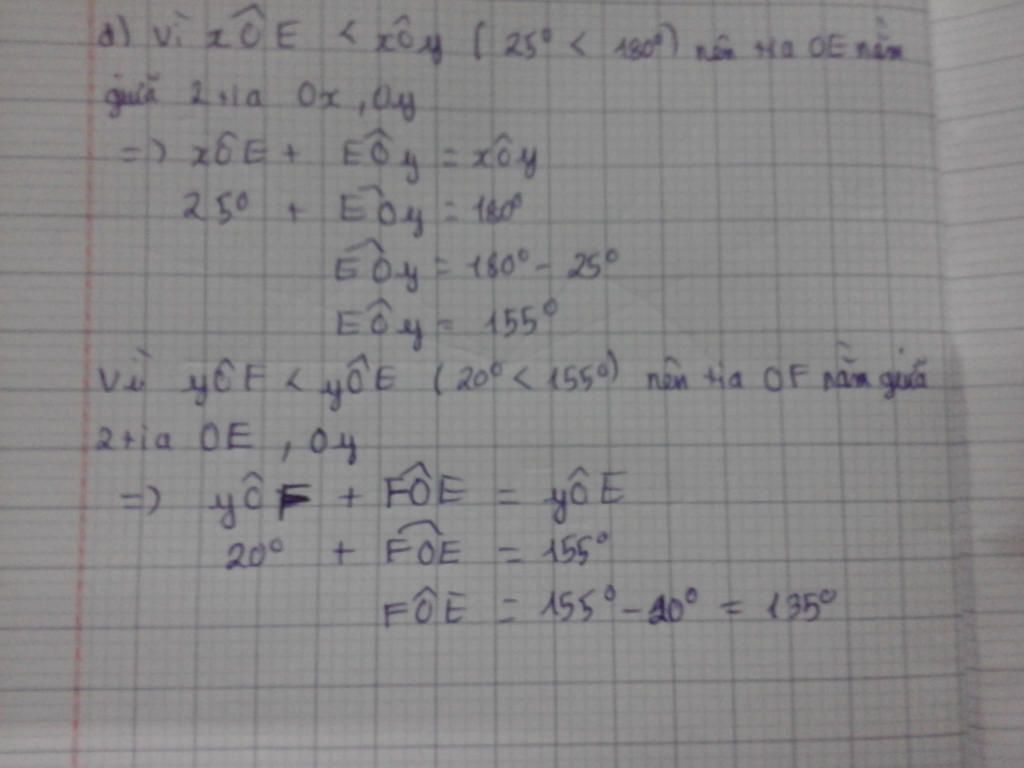 d) Vì xÔE < xÔy ( 25° < 180° ) nên tia OE nằm
giữa 2 tia Ox , Oy
=> xÔE + EÔy = xÔy
25° + EÔy = 180°
EÔy = 180° - 25°
EÔy = 155°
Vì yÔF < yÔE ( 20° < 155° ) nên tia OF nằm giữa
2 tia OE , Oy
=> yÔF + FÔE = yÔE
20° + FÔE = 155°
FÔE = 155° - 20° = 135°